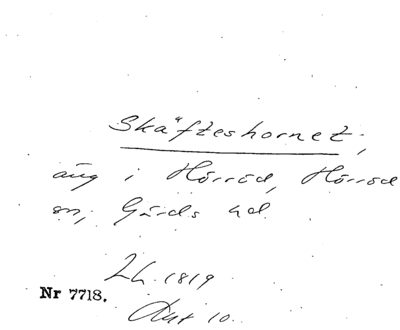 Skäfteshornet,
äng i Hörröd, Hörröd
sn, Gärds hd.
Lh. 1819
Nr 7718.
Akt 10.